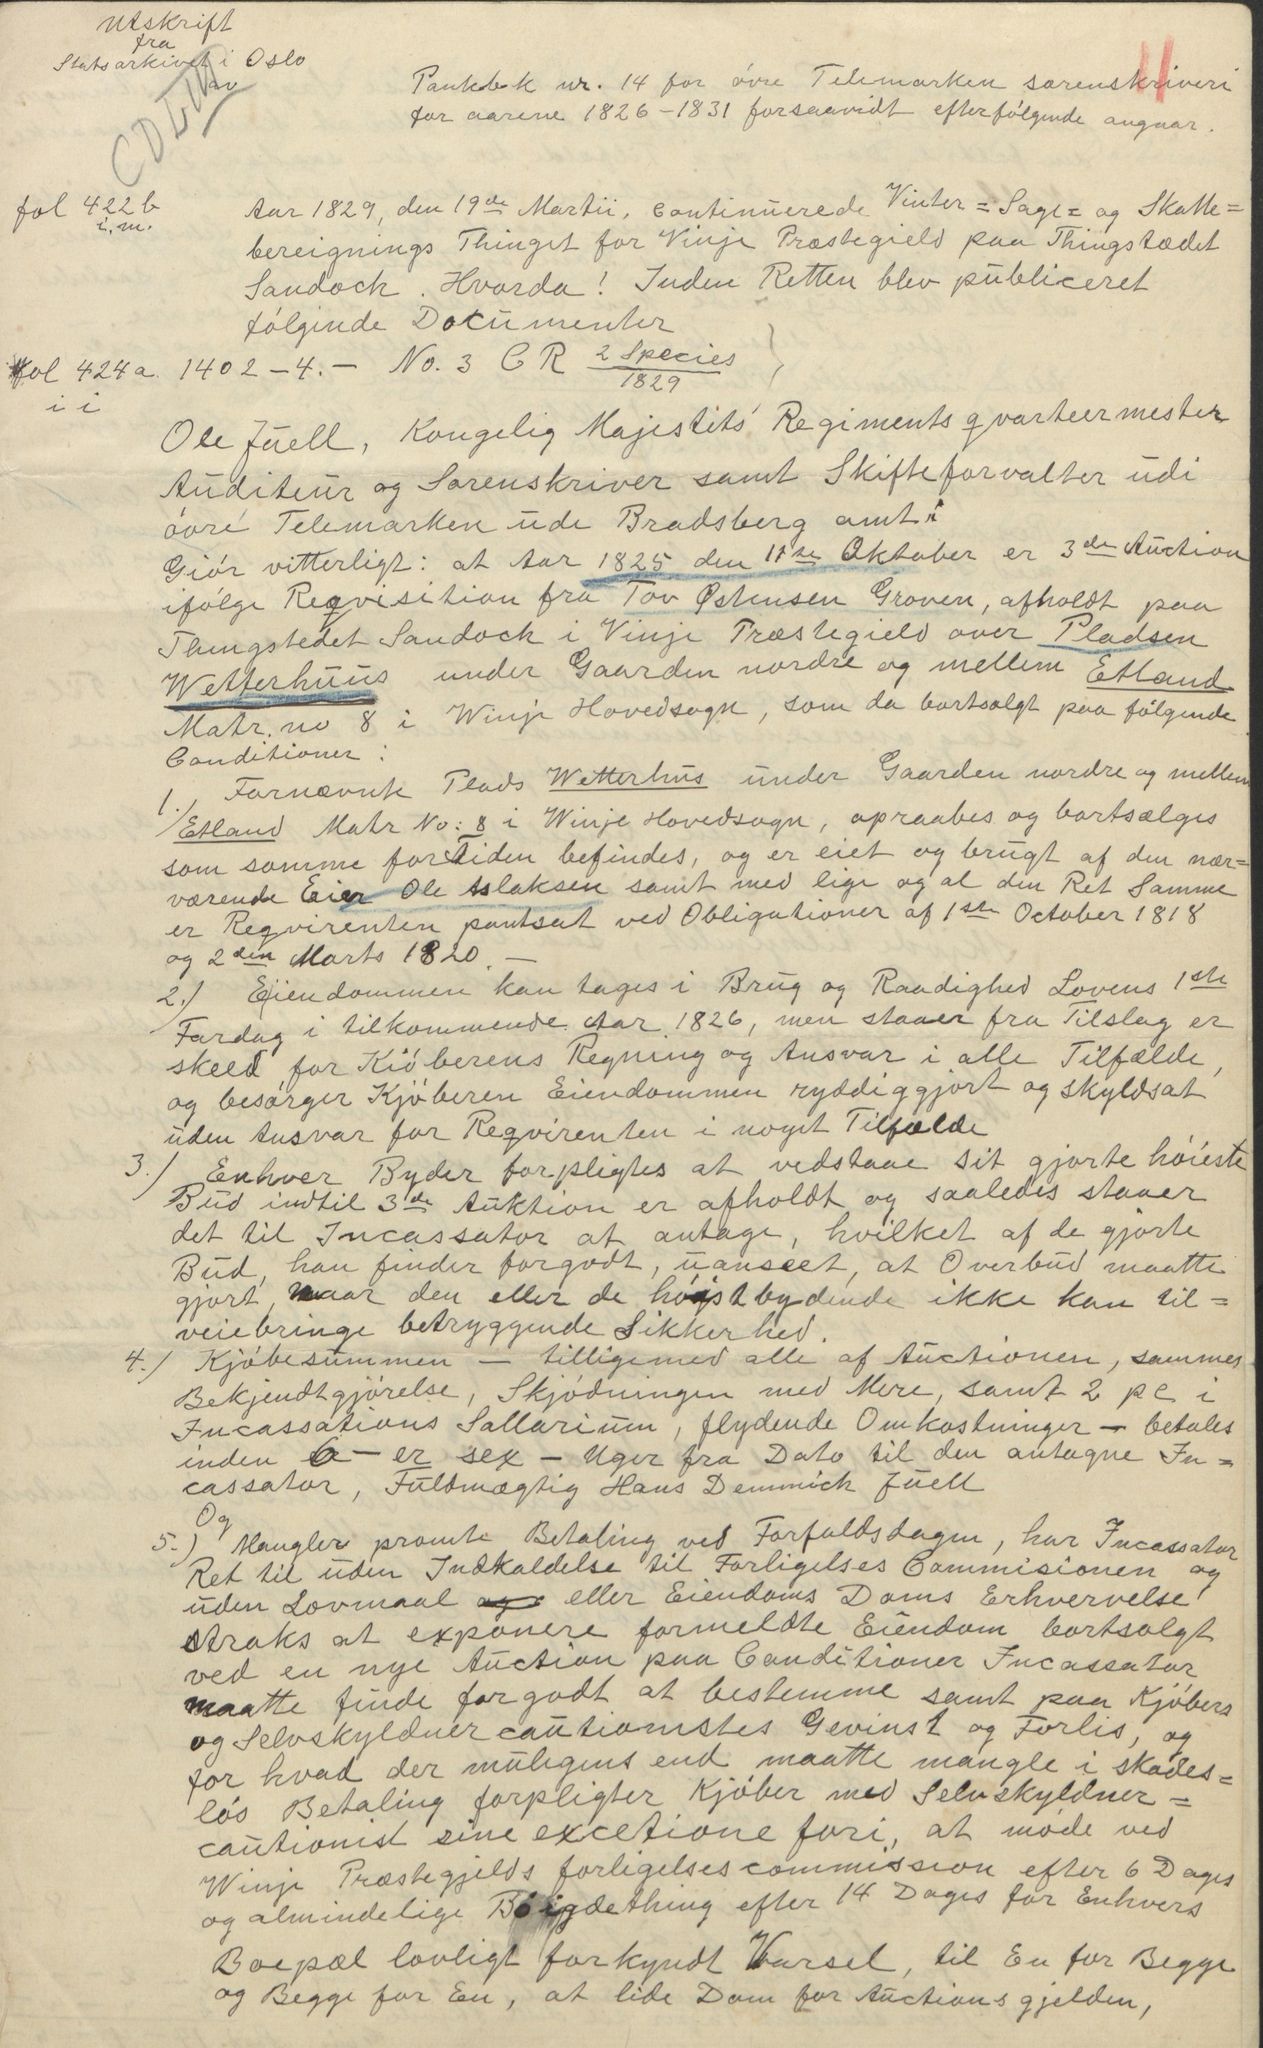 Utskrift
fra
Statsarkivet i Oslo
av
Pantebok nr. 14 for övre Telemarken sorenskriveri
for aarene 1826-1831 forsaavidt efterfölgende angaar.
11
fol 422b
i.m.
Aar 1829, den 19de Martii, continuerede Vinter= Sage= og Skatte=
bereignings Thinget for Vinje Præstegield paa Thingstædet
Sandock. Hvorda! Inden Retten blev publiceret
fölgende Documenter
fol 424a
i i
1402-4.- No. 3 C R 2 Species
1829
Ole Juell, Kongelig Majestets Regimentsqvarteermester
Auditeur og Sorenskriver samt Skifteforvalter udi
övre Telemarken ude Bradsberg amt
Giör vitterligt: at Aar 1825 den 11te Oktober er 3die Auction
ifölge Reqvisition fra Tov Østensen Groven, afholdt paa
Thingstedet Sandock i Vinje Præstegield over Pladsen
Wetterhuus under Gaarden nordre og mellem Etland
Matr. no 8 i Winje Hovedsogn, som da bortsolgt paa fölgende
Conditioner:
1.) Fornævnte Plads Wetterhus under Gaarden nordre og mellem
Etland Matr No: 8 i Winje Hovedsogn, opraabes og bortsælges
som samme for Tiden befindes, og er eiet og brugt af den nær=
værende Eier Ole Aslaksen samt med lige og al den Ret Samme
er Reqvirenten pantsat ved Obligationer af 1ste October 1818
og 2den Marts 1820.-
2.) Eiendommen kan tages i Brug og Raadighed Lovens 1ste
Fardag i tilkommende Aar 1826, men staaer fra Tilslag er
skeed for Kiöberens Regning og Ansvar i alle Tilfælde,
og besörger Kjöberen Eiendommen ryddiggjort og skyldsat
uden Ansvar for Reqvirenten i noget Tilfælde
3.) Enhver Byder forpligtes at vedstaae sit gjorte höieste
Bud indtil 3die Auktion er afholdt og saaledes staaer
det til Incassator at antage, hvilket af de gjorte
Bud, han finder forgodt, uanseet, at Overbud maatte
gjort, naar den eller de höistbydende ikke kan til=
veiebringe betryggende Sikkerhed.
4.) Kjöbesummen - tilligemed alle af Auctionen, sammes
Bekjendtgjörelse, Skjödningen med Mere, samt 2 pc i
Incassations Sallarium, flydende Omkostninger - betales
inden 6 - er sex - Uger fra Dato til den antagne In=
cassator, Fuldmægtig Hans Demmick Juell
Og
5.) Mangler promte Betaling ved Forfaldsdagen, har Incassator
Ret til uden Indkaldelse til Forligelses Commisionen og
uden Lovmaal eller Eiendoms Doms Erhvervelse
straks at exponere formeldte Eiendom bortsolgt
ved en nye Auction paa Conditioner Incassator
maatte finde forgodt at bestemme samt paa Kjöbers
og Selvskyldnercautionistes Gevinst og Forlis, og
for hvad der muligens end maatte mangle i skades=
lös Betaling forpligter Kjöber med Selvskyldner=
cautionist sine excetione fori, at möde ved
Winje Præstegjelds forligelsescommission efter 6 Dages
og almindelige Böigdething efter 14 Dages for Enhvers
Boepæl lovligt forkyndt Varsel, til En for Begge
og Begge for En, at lide Dom for Auctionsgjelden,